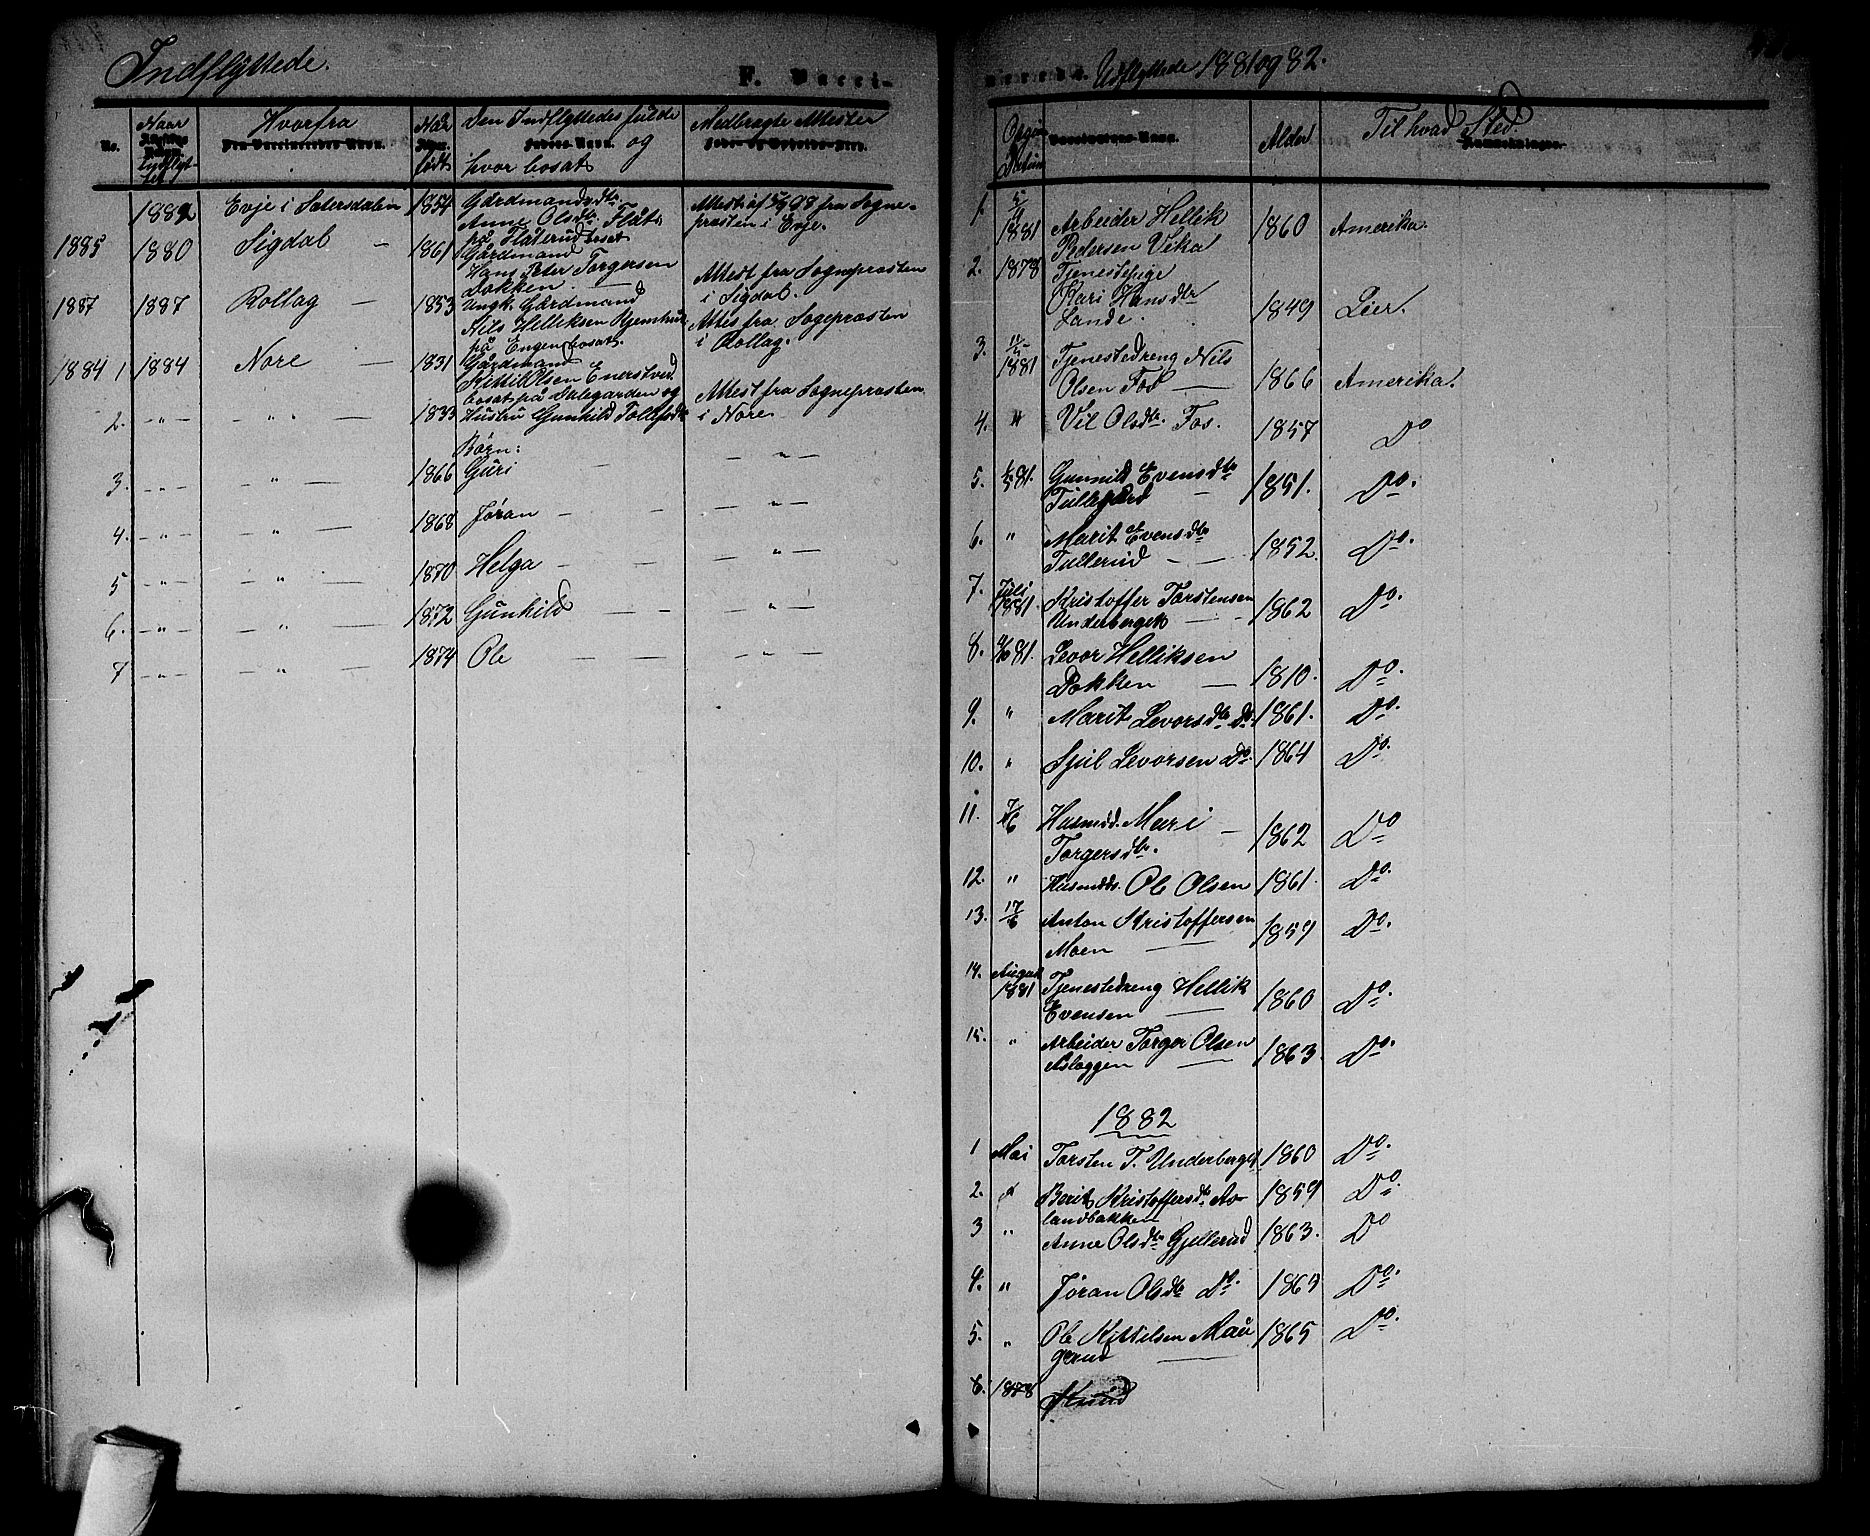 Indflyttede.
F. Vacci-
No.
Naar Indflyttet
Hvorfra
Naar født
Den Indflyttedes fulde Navn og hvor bosat
Medbragte Attester
1882 Evje i Sætersdalen 1854 Gårdmandsdtr.
Anne Olsdtr. Flåt
på Flåterud bosat
Attest af fra Sogne-
præsten i Evje.
1885 1880 Sigdal — 1861 Gårdmand
Hans Peter Torgersen
Dokken. —
Attest fra Sognepræsten
i Sigdal.
1887 1887 Rollag — 1853 Ungk. Gårdmand
Nils Helliksen
på Engen bosat.
Attes fra Sogepræsten
i Rollag.
1884 1 1884 Nore — 1831 Gårdmand
Kittil Olsen Enerstved
bosat på Dalegarden og
Attest fra Sognepræsten
i Nore
2. -„- - „ - 1833 Hustru Gunhild Tollefsdtr
Børn:
3. -„- - „ - 1866 Guri - - „ -
4. -„- - „ - 1868 Jøran - - „ -
5 -„- - „ - 1870 Helga - - - „ -
6. -„- - „ - 1872 Gunhild - - - „ -
7 -„- - „ - 1874 Ole - - - „ -
Udflyttede 1881 og 82.
Alder
Til hvad Sted.
1. 5/4 1881 Arbeider Hellik
Pedersen Vika 1860 Amerika.
2. 1878 Tjenestepige
Kari Hansdtr
Lande. 1849 Lier.
3. 1881 Tjenestedreng Nils
Olsen Fos — 1866 Amerika.
4. " Vil Olsdtr. Fos. 1857 Do
5. 81. Gunnild Evensdtr
Tullerud - 1851. Do.
6. " Marit Evensdtr
Tullerud - - 1852. Do.
7. Juli 1881. Kristoffer Torstensen
Underberget - - 1862 Do.
8. 81. Levor Helliksen
Dokken — 1810. Do.
9. " Marit Levorsdtr Do. 1861. Do.
10. " Sjul Levorsen Do. 1864 Do.
11. 7/6 Husmdd. Mari
Torgersdtr. — 1862 Do
12. " Husmdds. Ole Olsen 1861. Do.
13. 17/6 Anton Kristoffersen
Moen — 1859 Do.
14. August 1881 Tjenestedreng Hellik
Evensen — 1860 Do.
15. " Arbeider Torger Olsen
Asloggen — 1863. Do.
1882
1 Mai Torsten T. Underberget 1860 Do.
2. " Berit Kristoffersdtr. As-
landbakken 1859 Do
3 " Anne Olsdtr Gjellerud 1863. Do
4. " Jøran Olsdtr Do. 1864 Do.
5. " Ole Kittilsen Mau
gerud — 1865 Do.
6. 1878